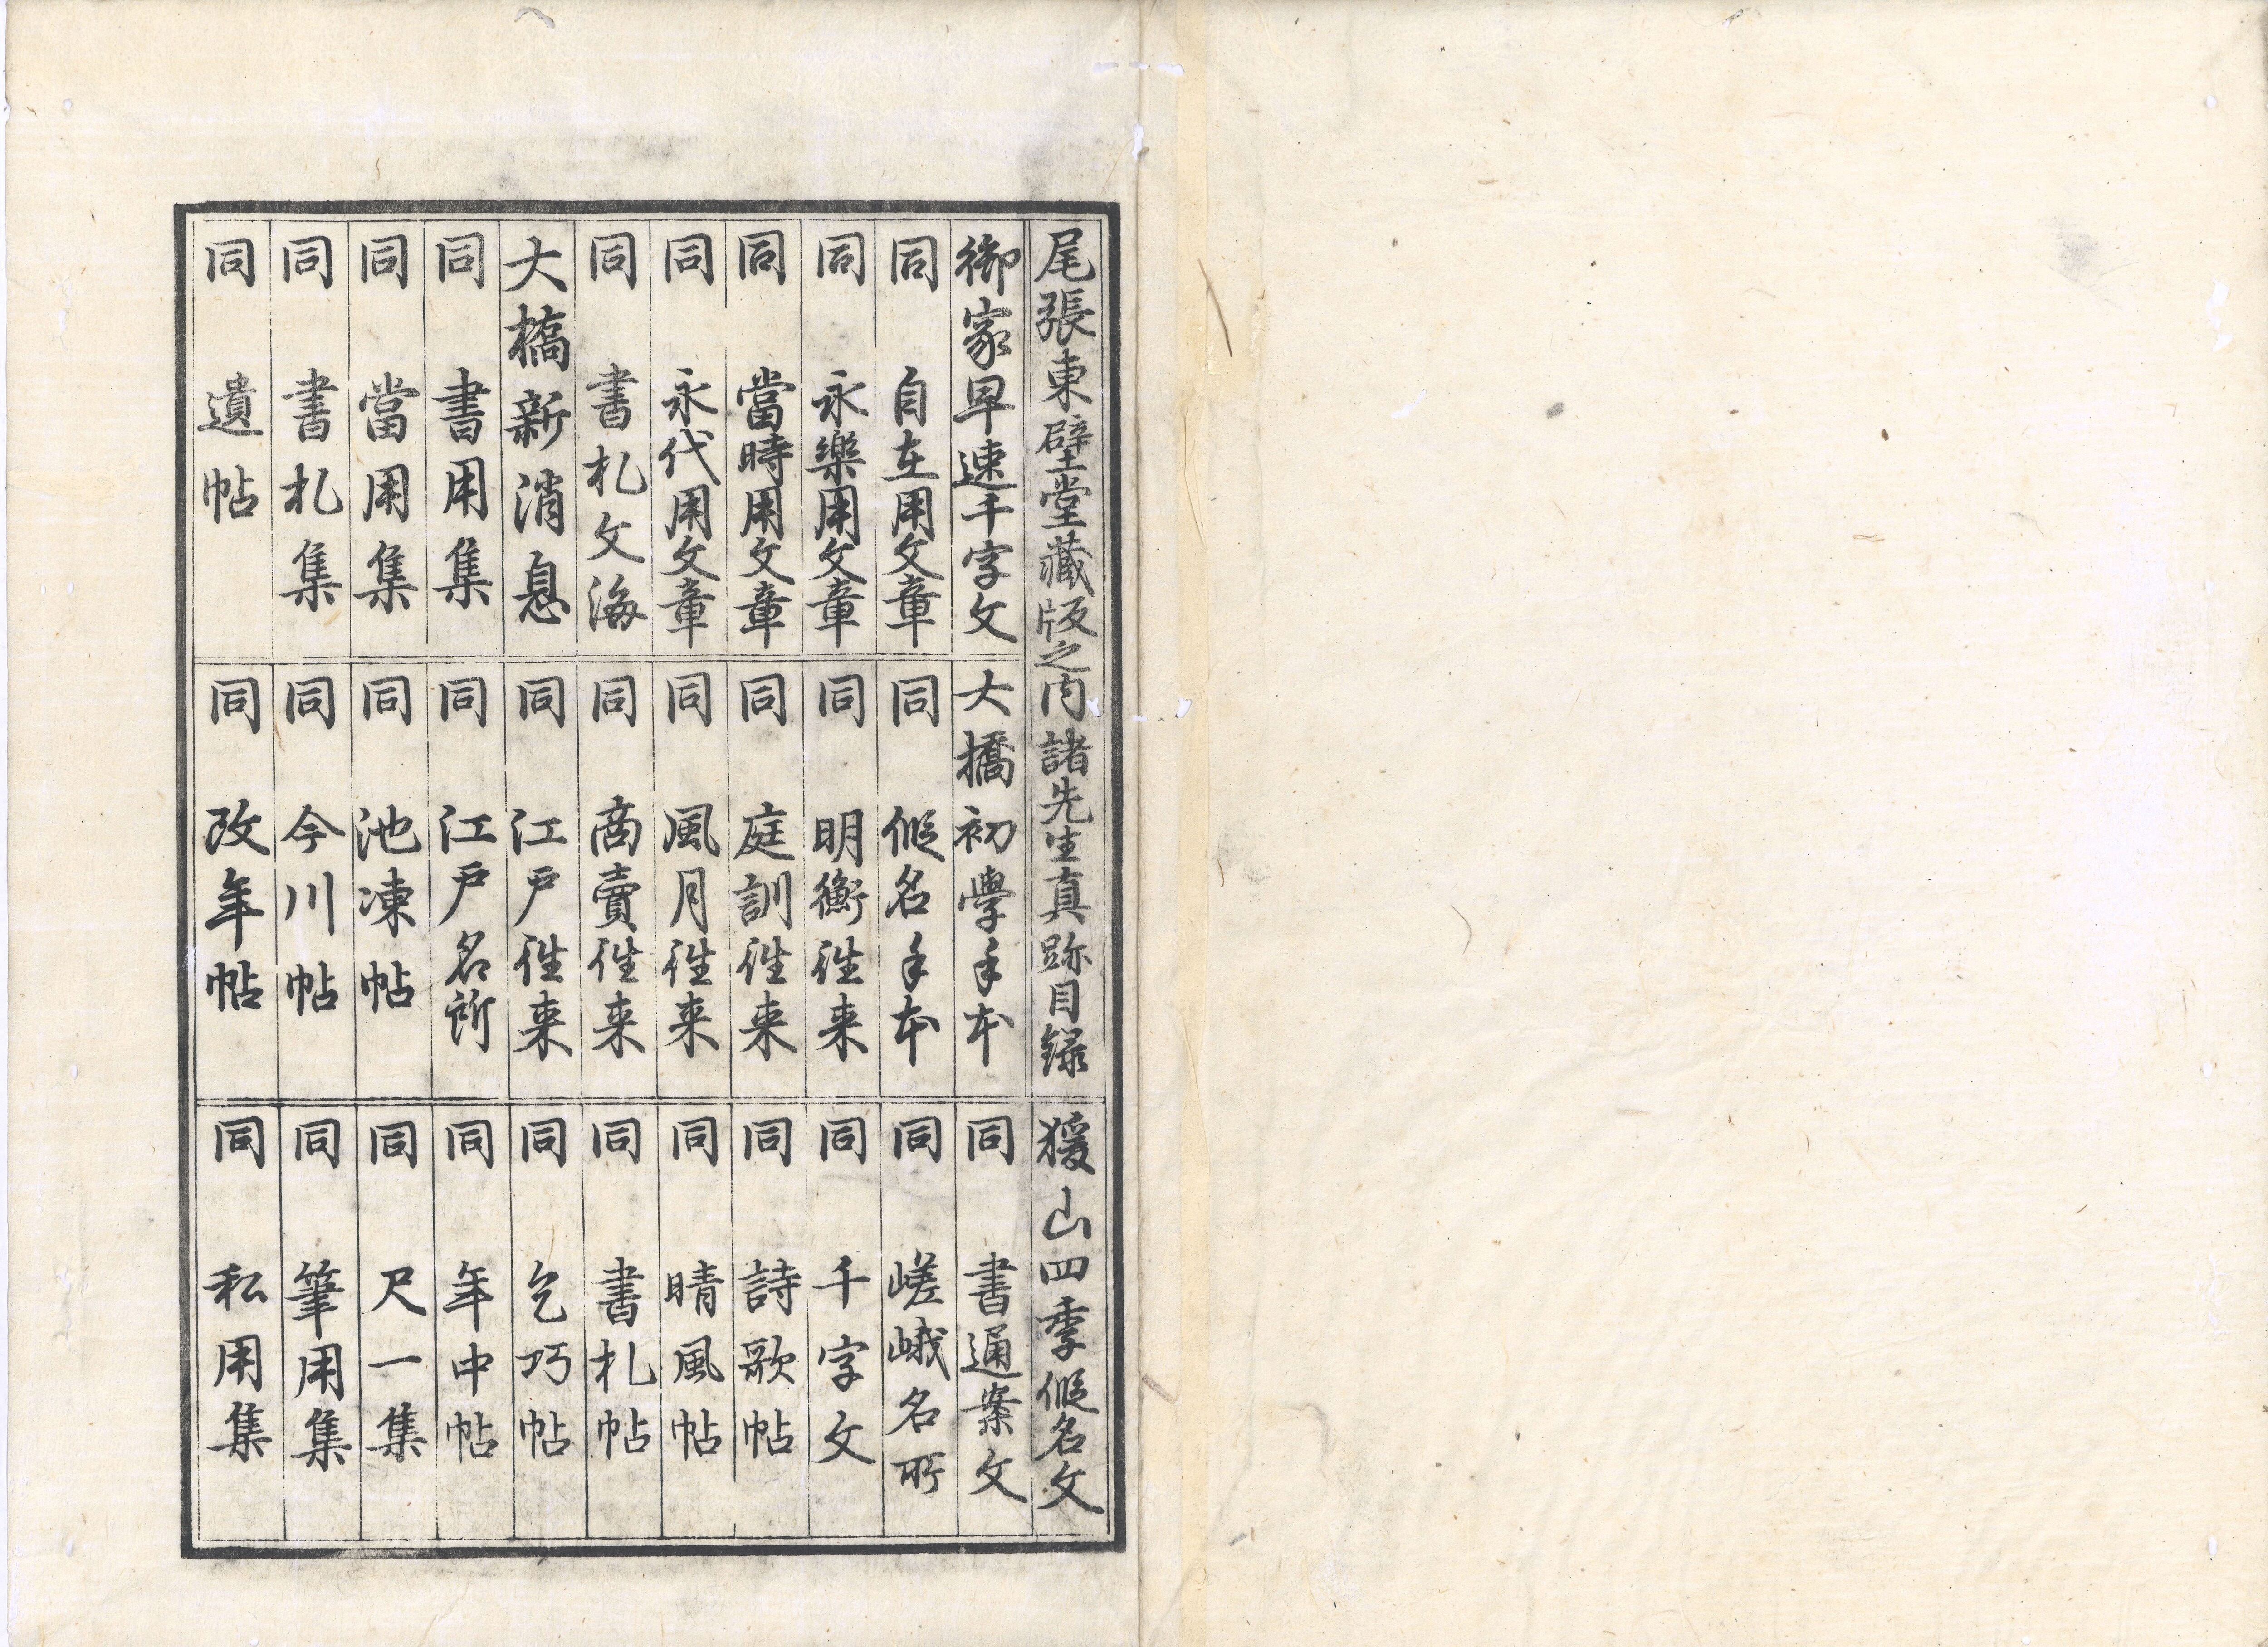 尾張東壁堂藏版之内諸先生真跡目録
御家早速千字文
同 自在用文章
同 永樂用文章
同 當時用文章
同 永代用文章
同 書札文海
大橋新消息
同 書用集
同 當用集
同 書札集
同 遺帖
大橋初學手本
同 假名手本
同 明衡徃来
同 庭訓徃来
同 風月徃来
同 商賣徃来
同 江戸徃来
同 江戸名所
同 池凍帖
同 今川帖
同 改年帖
猨山四季假名文
同 書通案文
同 嵯峨名所
同 千字文
同 詩歌帖
同 晴風帖
同 書札帖
同 乞巧帖
同 年中帖
同 尺一集
同 筆用集
同 私用集